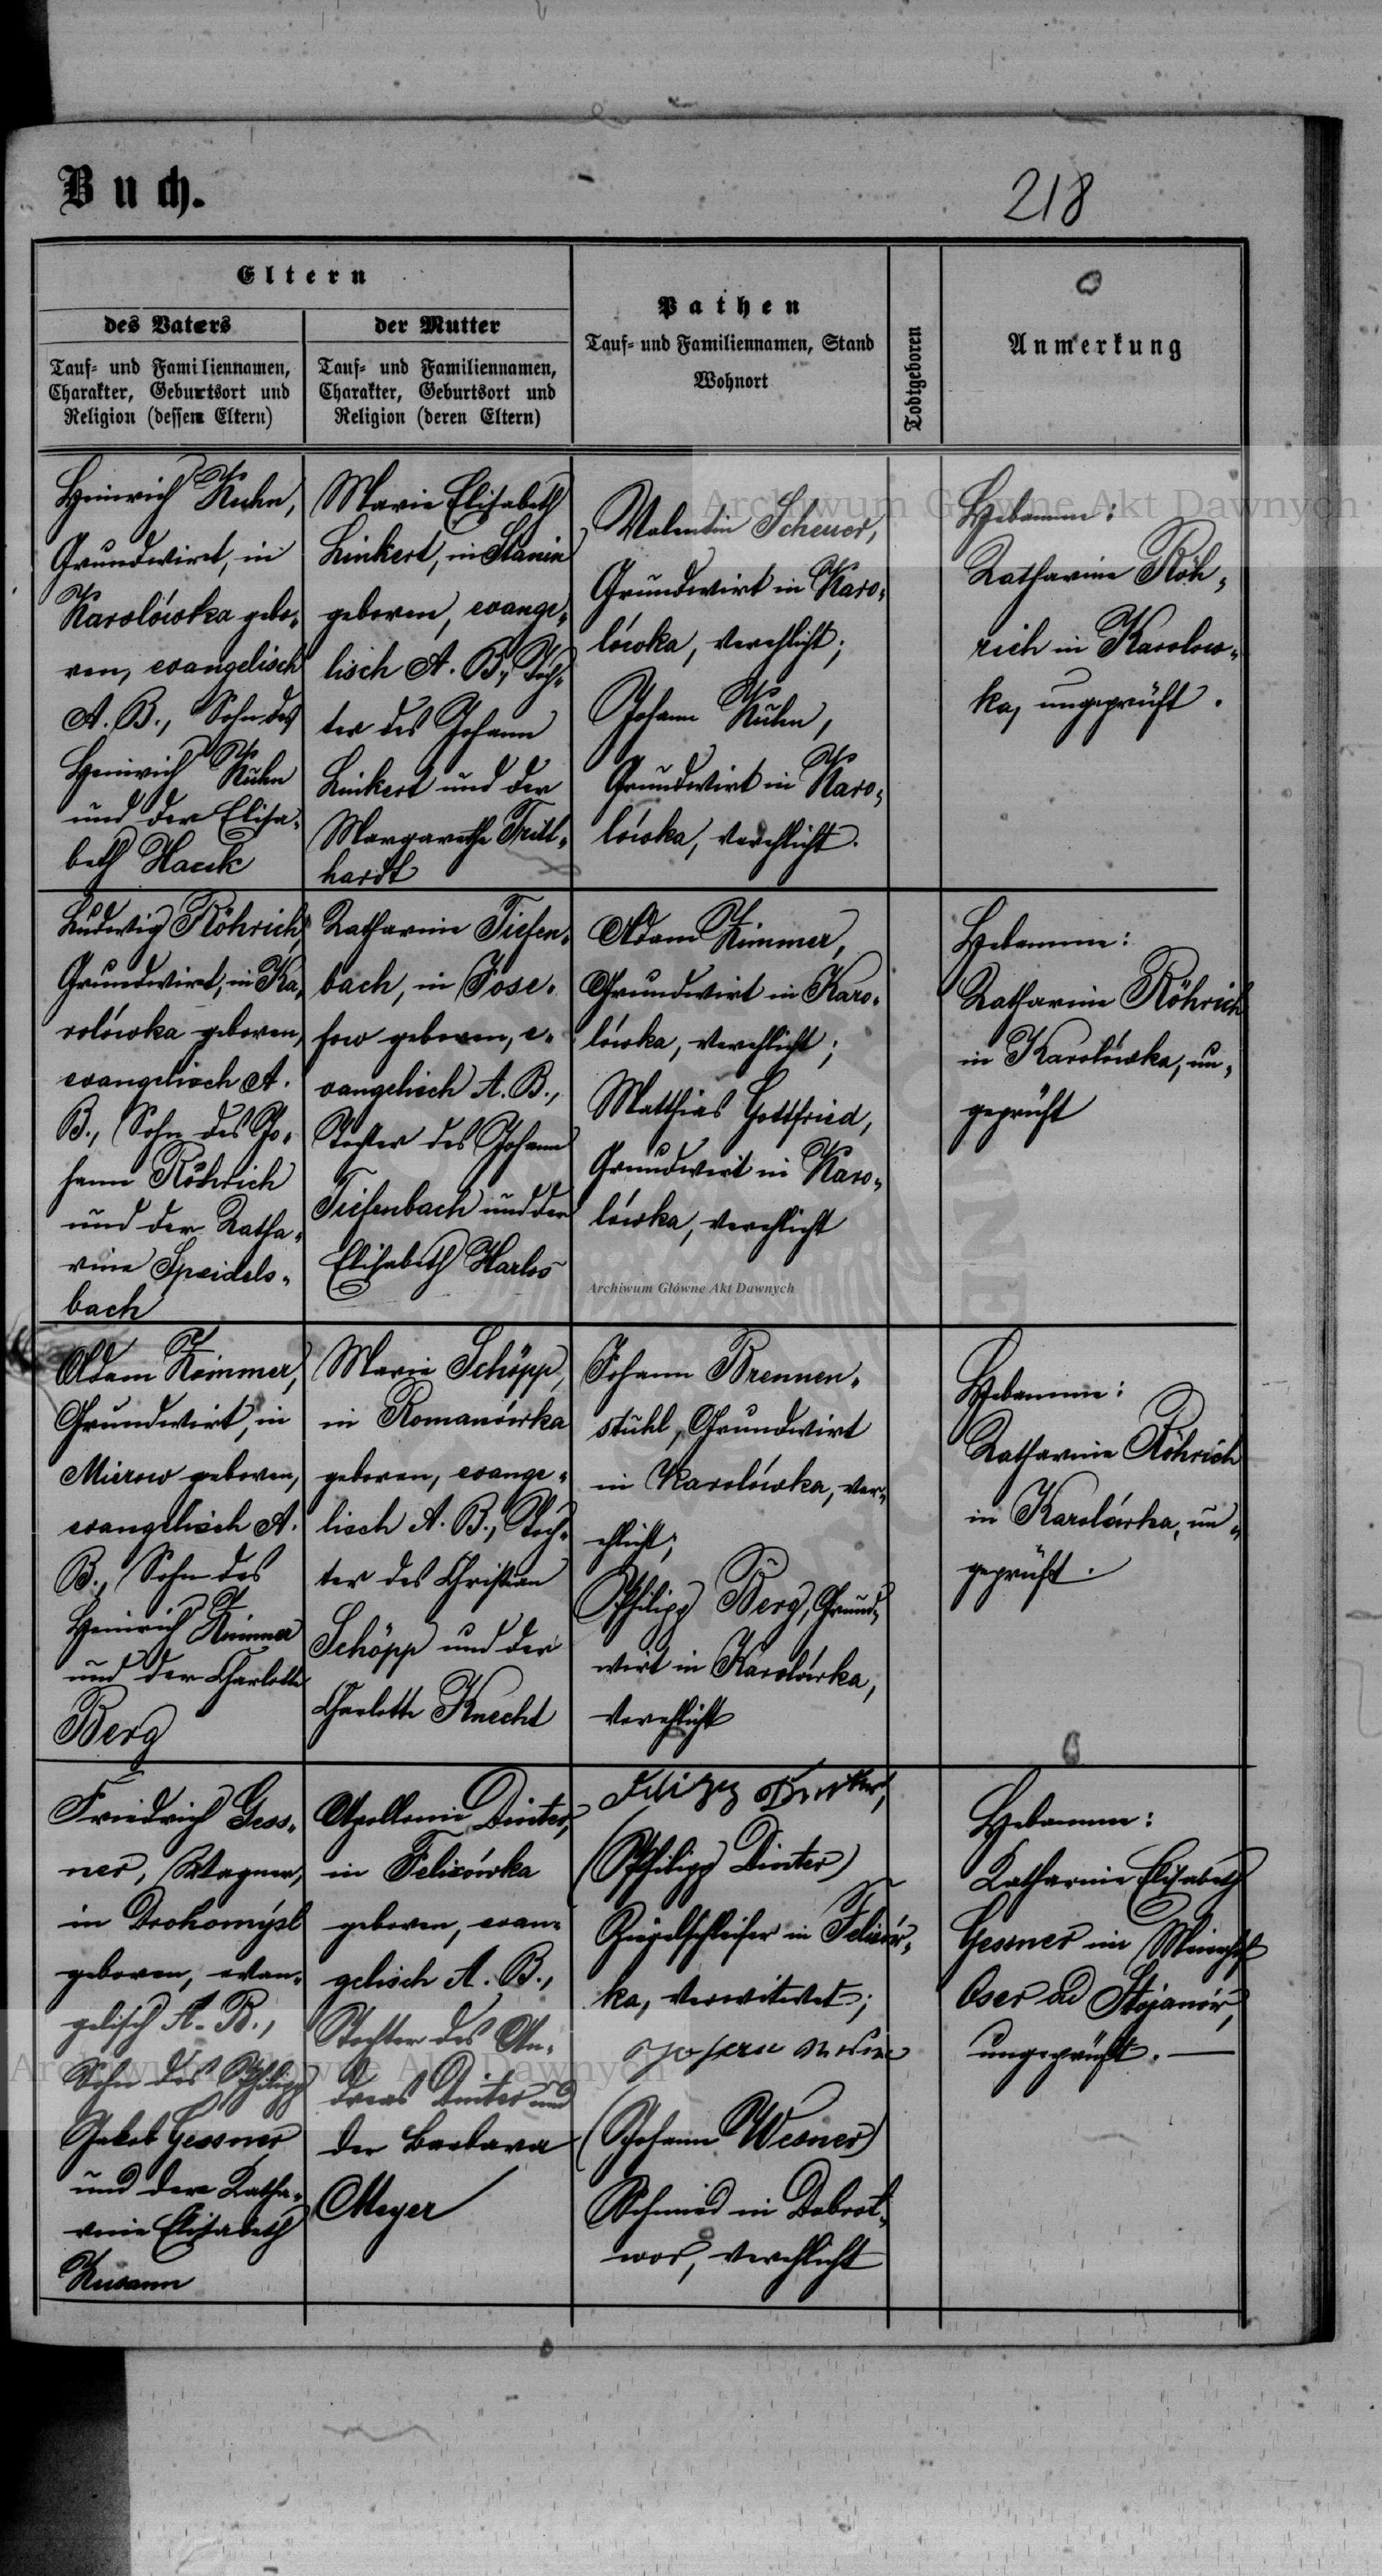 Buch.
218
Eltern
des Vaters
Tauf- und Familiennamen,
Charakter, Geburtsort und
Religion (dessen Eltern)
der Mutter
Tauf- und Familiennamen,
Charakter, Geburtsort und
Religion (deren Eltern)
Pathen
Tauf- und Familiennamen, Stand
Wohnort
Todtgeboren
Anmerkung
Heinrich Kuhn,
Grundwirt, in
Karolówka gebo-
ren, evangelisch
A. B., Sohn des
Heinrich Kuhn
und der Elisa-
beth Hauk
Marie Elisabeth
Linkert, in Stanin
geboren, evange-
lisch A. B., Toch-
ter des Johann
Linkert und der
Margarethe
hardt
Valentin Scheuer,
Grundwirt in Karo-
lówka, verehlicht;
Johann Kuhn,
Grundwirt in Karo-
lówka, verehlicht.
Hebamme:
Katharine Röh-
rich in Karolow-
ka, ungeprüft.
Ludwig Röhrich,
Grundwirt, in Ka-
rolówka geboren,
evangelisch A.
B., Sohn des Jo-
hann Röhrich
und der Katha-
rine Speidels-
bach
Katharine Tiefen-
bach, in Jose-
fow geboren, e-
vangelisch A. B.,
Tochter des Johann
Tiefenbach und der
Elisabeth Harlos
Adam Kimmer,
Grundwirt in Karo-
lówka, verehlicht;
Matthias Gottfried,
Grundwirt in Karo-
lówka, verehlicht
Hebamme:
Katharine Röhrich
in Karolówka, un-
geprüft
Adam Kimmer,
Grundwirt, in
Mierow geboren,
evangelisch A.
B., Sohn des
Heinrich Kimmer
und der Charlotte
Berg
Marie Schöpp,
in Romanówka
geboren, evange-
lisch A. B., Toch-
ter des Christian
Schöpp und der
Charlotte Knecht
Johann Brennen-
stuhl, Grundwirt
in Karolówka, ver-
ehlicht;
Philipp Berg, Grund-
wirt in Karolówka,
verehlicht
Hebamme:
Katharine Röhrich
in Karolówka, un-
geprüft.
Friedrich Gess-
ner, Wagner,
in Drohomýsl
geboren, evan-
gelisch A. B.,
Sohn des Philipp
Jakob Gessner
und der Katha-
rine Elisabeth
Apollonia Dinter,
in Felizówka
geboren, evan-
gelisch A. B.,
Tochter des An-
dreas Dinter und
der Barbara
Meyer
(Philipp Dinter)
in Felizów-
ka, verwitwet;
(Johann Wesner)
Schmied in Dobrot-
wor, verehlicht
Hebamme:
Katharine Elisabeth
Gessner im
Oser ad Stojanów,
ungeprüft. —
Archiwum Główne Akt Dawnych
Archiwum Główne Akt Dawnych
Archiwum Główne Akt Dawnych